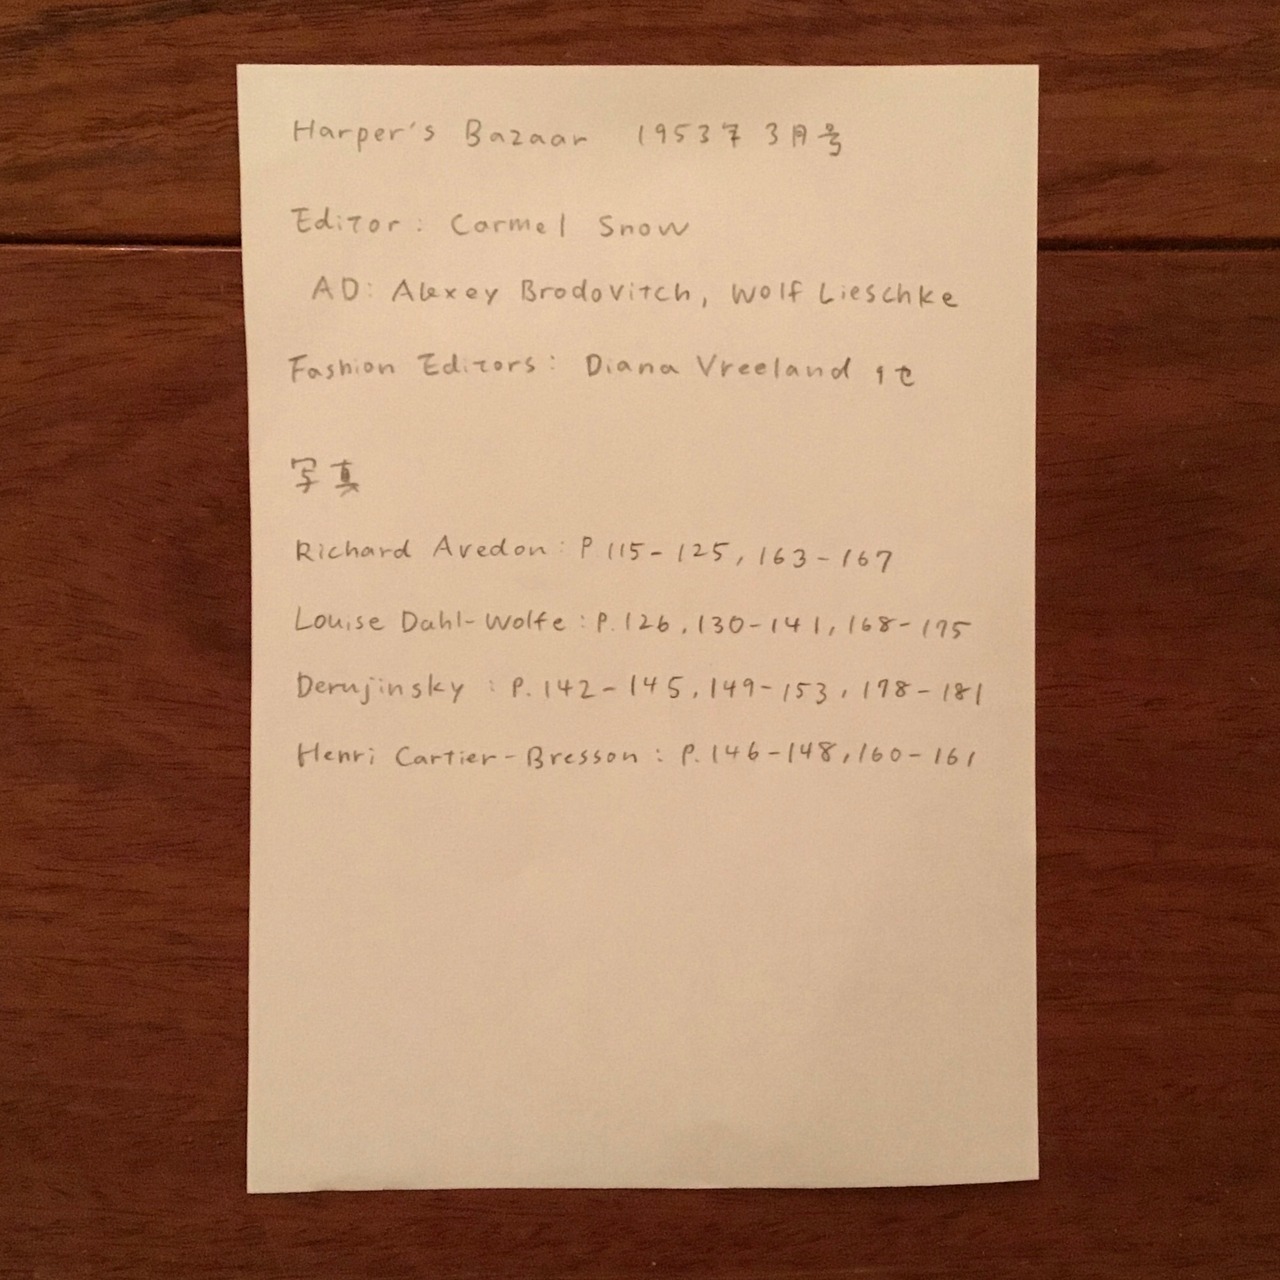 Harper's Bazaar 1953年 3月号
Editor: Carmel Snow
AD: Alexey Brodovitch, Wolf Lieschke
Fashion Editors: Diana Vreeland 他
写真
Richard Avedon: P.115-125, 163-167
Louise Dahl-Wolfe: P.126, 130-141, 168-175
Derujinsky: P.142-145, 149-153, 178-181
Henri Cartier-Bresson: P.146-148, 160-161